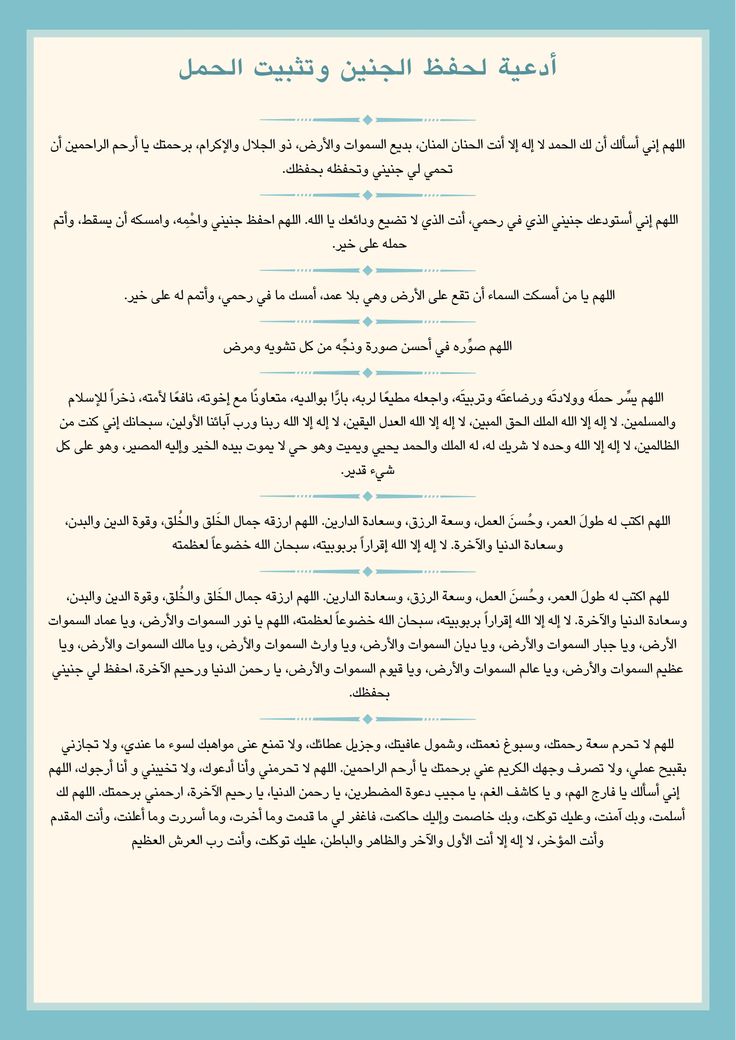 أدعية لحفظ الجنين وتثبيت الحمل
اللهم إني أسألك أن لك الحمد لا إله إلا أنت الحنان المنان، بديع السموات والأرض، ذو الجلال والإكرام، برحمتك يا أرحم الراحمين أن
تحمي لي جنيني وتحفظه بحفظك.
اللهم إني أستودعك جنيني الذي في رحمي، أنت الذي لا تضيع ودائعك يا الله. اللهم احفظ جنيني واحْمِه، وامسكه أن يسقط، وأتم
حمله على خير.
اللهم يا من أمسكت السماء أن تقع على الأرض وهي بلا عمد، أمسك ما في رحمي، وأتمم له على خير.
اللهم صوِّره في أحسن صورة ونجِّه من كل تشويه ومرض
اللهم يسِّر حملَه وولادتَه ورضاعتَه وتربيتَه، واجعله مطيعًا لربه، بارًّا بوالديه، متعاونًا مع إخوته، نافعًا لأمته، ذخراً للإسلام
والمسلمين. لا إله إلا الله الملك الحق المبين، لا إله إلا الله العدل اليقين، لا إله إلا الله ربنا ورب آبائنا الأولين، سبحانك إني كنت من
الظالمين، لا إله إلا الله وحده لا شريك له، له الملك والحمد يحيي ويميت وهو حي لا يموت بيده الخير وإليه المصير، وهو على كل
شيء قدير.
اللهم اكتب له طولَ العمر، وحُسنَ العمل، وسعة الرزق، وسعادة الدارين. اللهم ارزقه جمال الخَلق والخُلق، وقوة الدين والبدن،
وسعادة الدنيا والآخرة. لا إله إلا الله إقراراً بربوبيته، سبحان الله خضوعاً لعظمته
للهم اكتب له طولَ العمر، وحُسنَ العمل، وسعة الرزق، وسعادة الدارين. اللهم ارزقه جمال الخَلق والخُلق، وقوة الدين والبدن،
وسعادة الدنيا والآخرة. لا إله إلا الله إقراراً بربوبيته، سبحان الله خضوعاً لعظمته، اللهم يا نور السموات والأرض، ويا عماد السموات
الأرض، ويا جبار السموات والأرض، ويا ديان السموات والأرض، ويا وارث السموات والأرض، ويا مالك السموات والأرض، ويا
عظيم السموات والأرض، ويا عالم السموات والأرض، ويا قيوم السموات والأرض، يا رحمن الدنيا ورحيم الآخرة، احفظ لي جنيني
بحفظك.
للهم لا تحرم سعة رحمتك، وسبوغ نعمتك، وشمول عافيتك، وجزيل عطائك، ولا تمنع عنى مواهبك لسوء ما عندي، ولا تجازني
بقبيح عملي، ولا تصرف وجهك الكريم عني برحمتك يا أرحم الراحمين. اللهم لا تحرمني وأنا أدعوك، ولا تخيبني و أنا أرجوك، اللهم
إني أسألك يا فارج الهم، و يا كاشف الغم، يا مجيب دعوة المضطرين، يا رحمن الدنيا، يا رحيم الآخرة، ارحمني برحمتك. اللهم لك
أسلمت، وبك آمنت، وعليك توكلت، وبك خاصمت وإليك حاكمت، فاغفر لي ما قدمت وما أخرت، وما أسررت وما أعلنت، وأنت المقدم
وأنت المؤخر، لا إله إلا أنت الأول والآخر والظاهر والباطن، عليك توكلت، وأنت رب العرش العظيم